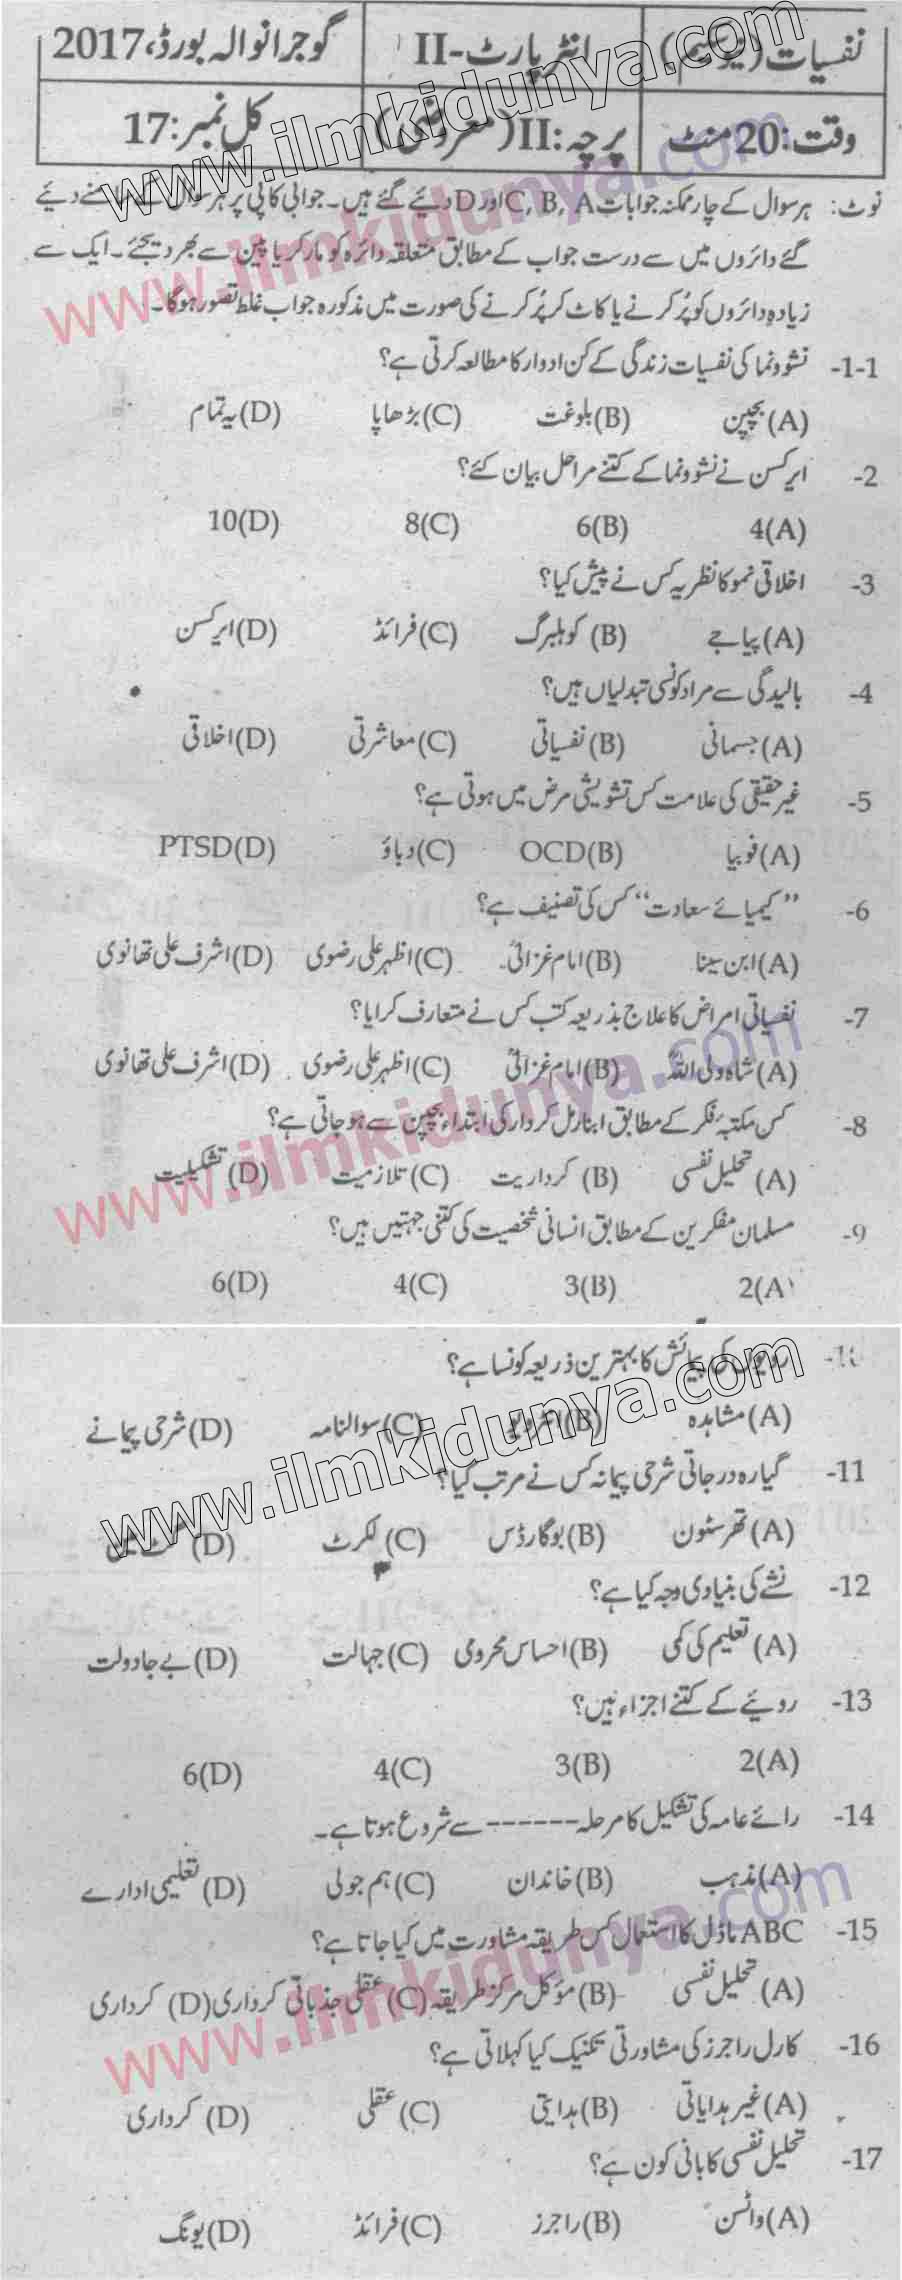 نفسیات (نیو سکیم) انٹر پارٹ-II گوجرانوالہ بورڈ، 2017
وقت: 20 منٹ پرچہ: II (معروضی) کل نمبر: 17
نوٹ: ہر سوال کے چار ممکنہ جوابات C, B, A اور D دیئے گئے ہیں۔ جوابی کاپی پر ہر سوال کے سامنے دیئے
گئے دائروں میں سے درست جواب کے مطابق متعلقہ دائرہ کو مارکر یا پین سے بھر دیجئے۔ ایک سے
زیادہ دائروں کو پُر کرنے یا کاٹ کر پُر کرنے کی صورت میں مذکورہ جواب غلط تصور ہوگا۔
1-1- نشوونما کی نفسیات زندگی کے کن ادوار کا مطالعہ کرتی ہے؟
(A) بچپن (B) بلوغت (C) بڑھاپا (D) یہ تمام
2- ایرکسن نے نشوونما کے کتنے مراحل بیان کئے؟
(A) 4 (B) 6 (C) 8 (D) 10
3- اخلاقی نمو کا نظریہ کس نے پیش کیا؟
(A) پیاجے (B) کوہلبرگ (C) فرائڈ (D) ایرکسن
4- بالیدگی سے مراد کونسی تبدلیاں ہیں؟
(A) جسمانی (B) نفسیاتی (C) معاشرتی (D) اخلاقی
5- غیر حقیقی کی علامت کس تشویشی مرض میں ہوتی ہے؟
(A) فوبیا (B) OCD (C) دباؤ (D) PTSD
6- ”کیمیائے سعادت“ کس کی تصنیف ہے؟
(A) ابن سینا (B) امام غزالیؒ (C) اظہر علی رضوی (D) اشرف علی تھانوی
7- نفسیاتی امراض کا علاج بذریعہ کتب کس نے متعارف کرایا؟
(A) شاہ ولی اللہؒ (B) امام غزالیؒ (C) اظہر علی رضوی (D) اشرف علی تھانوی
8- کس مکتبۂ فکر کے مطابق ابنارمل کردار کی ابتداء بچپن سے ہوجاتی ہے؟
(A) تحلیل نفسی (B) کرداریت (C) تلازمیت (D) تشکیلیت
9- مسلمان مفکرین کے مطابق انسانی شخصیت کی کتنی جہتیں ہیں؟
(A) 2 (B) 3 (C) 4 (D) 6
10- رویوں کی پیمائش کا بہترین ذریعہ کونسا ہے؟
(A) مشاہدہ (B) انٹرویو (C) سوالنامہ (D) شرحی پیمانے
11- گیارہ درجاتی شرحی پیمانہ کس نے مرتب کیا؟
(A) تھرسٹون (B) بوگارڈس (C) لکرٹ (D)
12- نشے کی بنیادی وجہ کیا ہے؟
(A) تعلیم کی کمی (B) احساس محرومی (C) جہالت (D) بے جا دولت
13- رویئے کے کتنے اجزاء ہیں؟
(A) 2 (B) 3 (C) 4 (D) 6
14- رائے عامہ کی تشکیل کا مرحلہ ------ سے شروع ہوتا ہے۔
(A) مذہب (B) خاندان (C) ہم جولی (D) تعلیمی ادارے
15- ABC ماڈل کا استعمال کس طریقہ مشاورت میں کیا جاتا ہے؟
(A) تحلیل نفسی (B) مؤکل مرکز طریقہ (C) عقلی جذباتی کرداری (D) کرداری
16- کارل راجرز کی مشاورتی تکنیک کیا کہلاتی ہے؟
(A) غیر ہدایاتی (B) ہدایتی (C) عقلی (D) کرداری
17- تحلیل نفسی کا بانی کون ہے؟
(A) واٹسن (B) راجرز (C) فرائڈ (D) یونگ
www.ilmkidunya.com
www.ilmkidunya.com
www.ilmkidunya.com
www.ilmkidunya.com
www.ilmkidunya.com